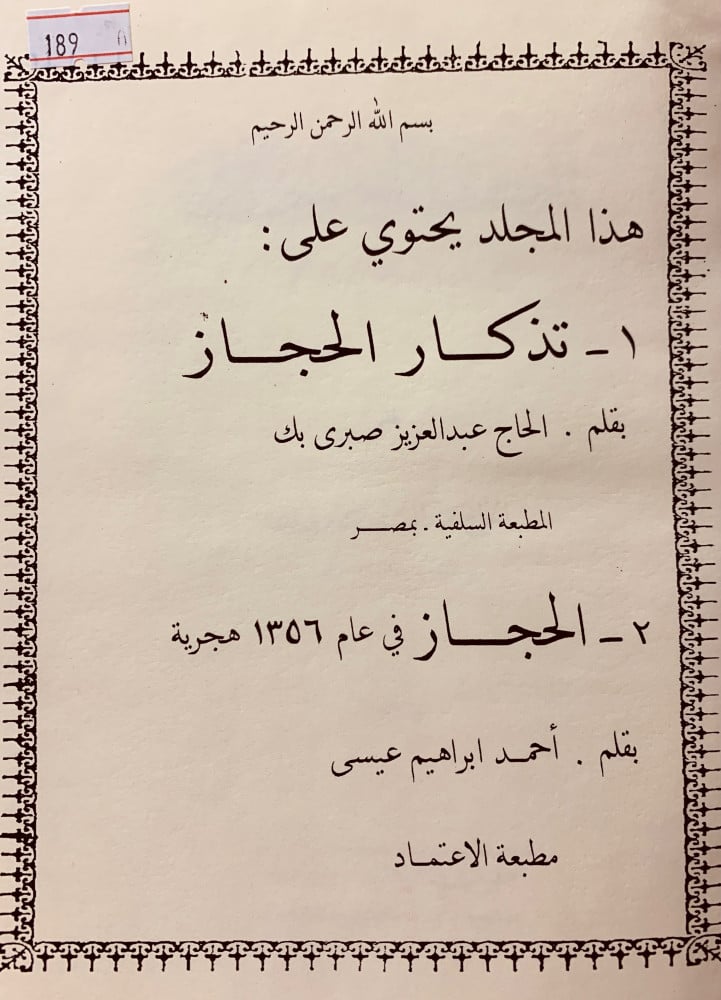 189
بسم الله الرحمن الرحيم
هذا المجلد يحتوي على:
١ - تذكار الحجاز
بقلم . الحاج عبدالعزيز صبرى بك
المطبعة السلفية . بمصر
٢ - الحجاز في عام ١٣٥٦ هجرية
بقلم . أحمد ابراهيم عيسى
مطبعة الاعتماد